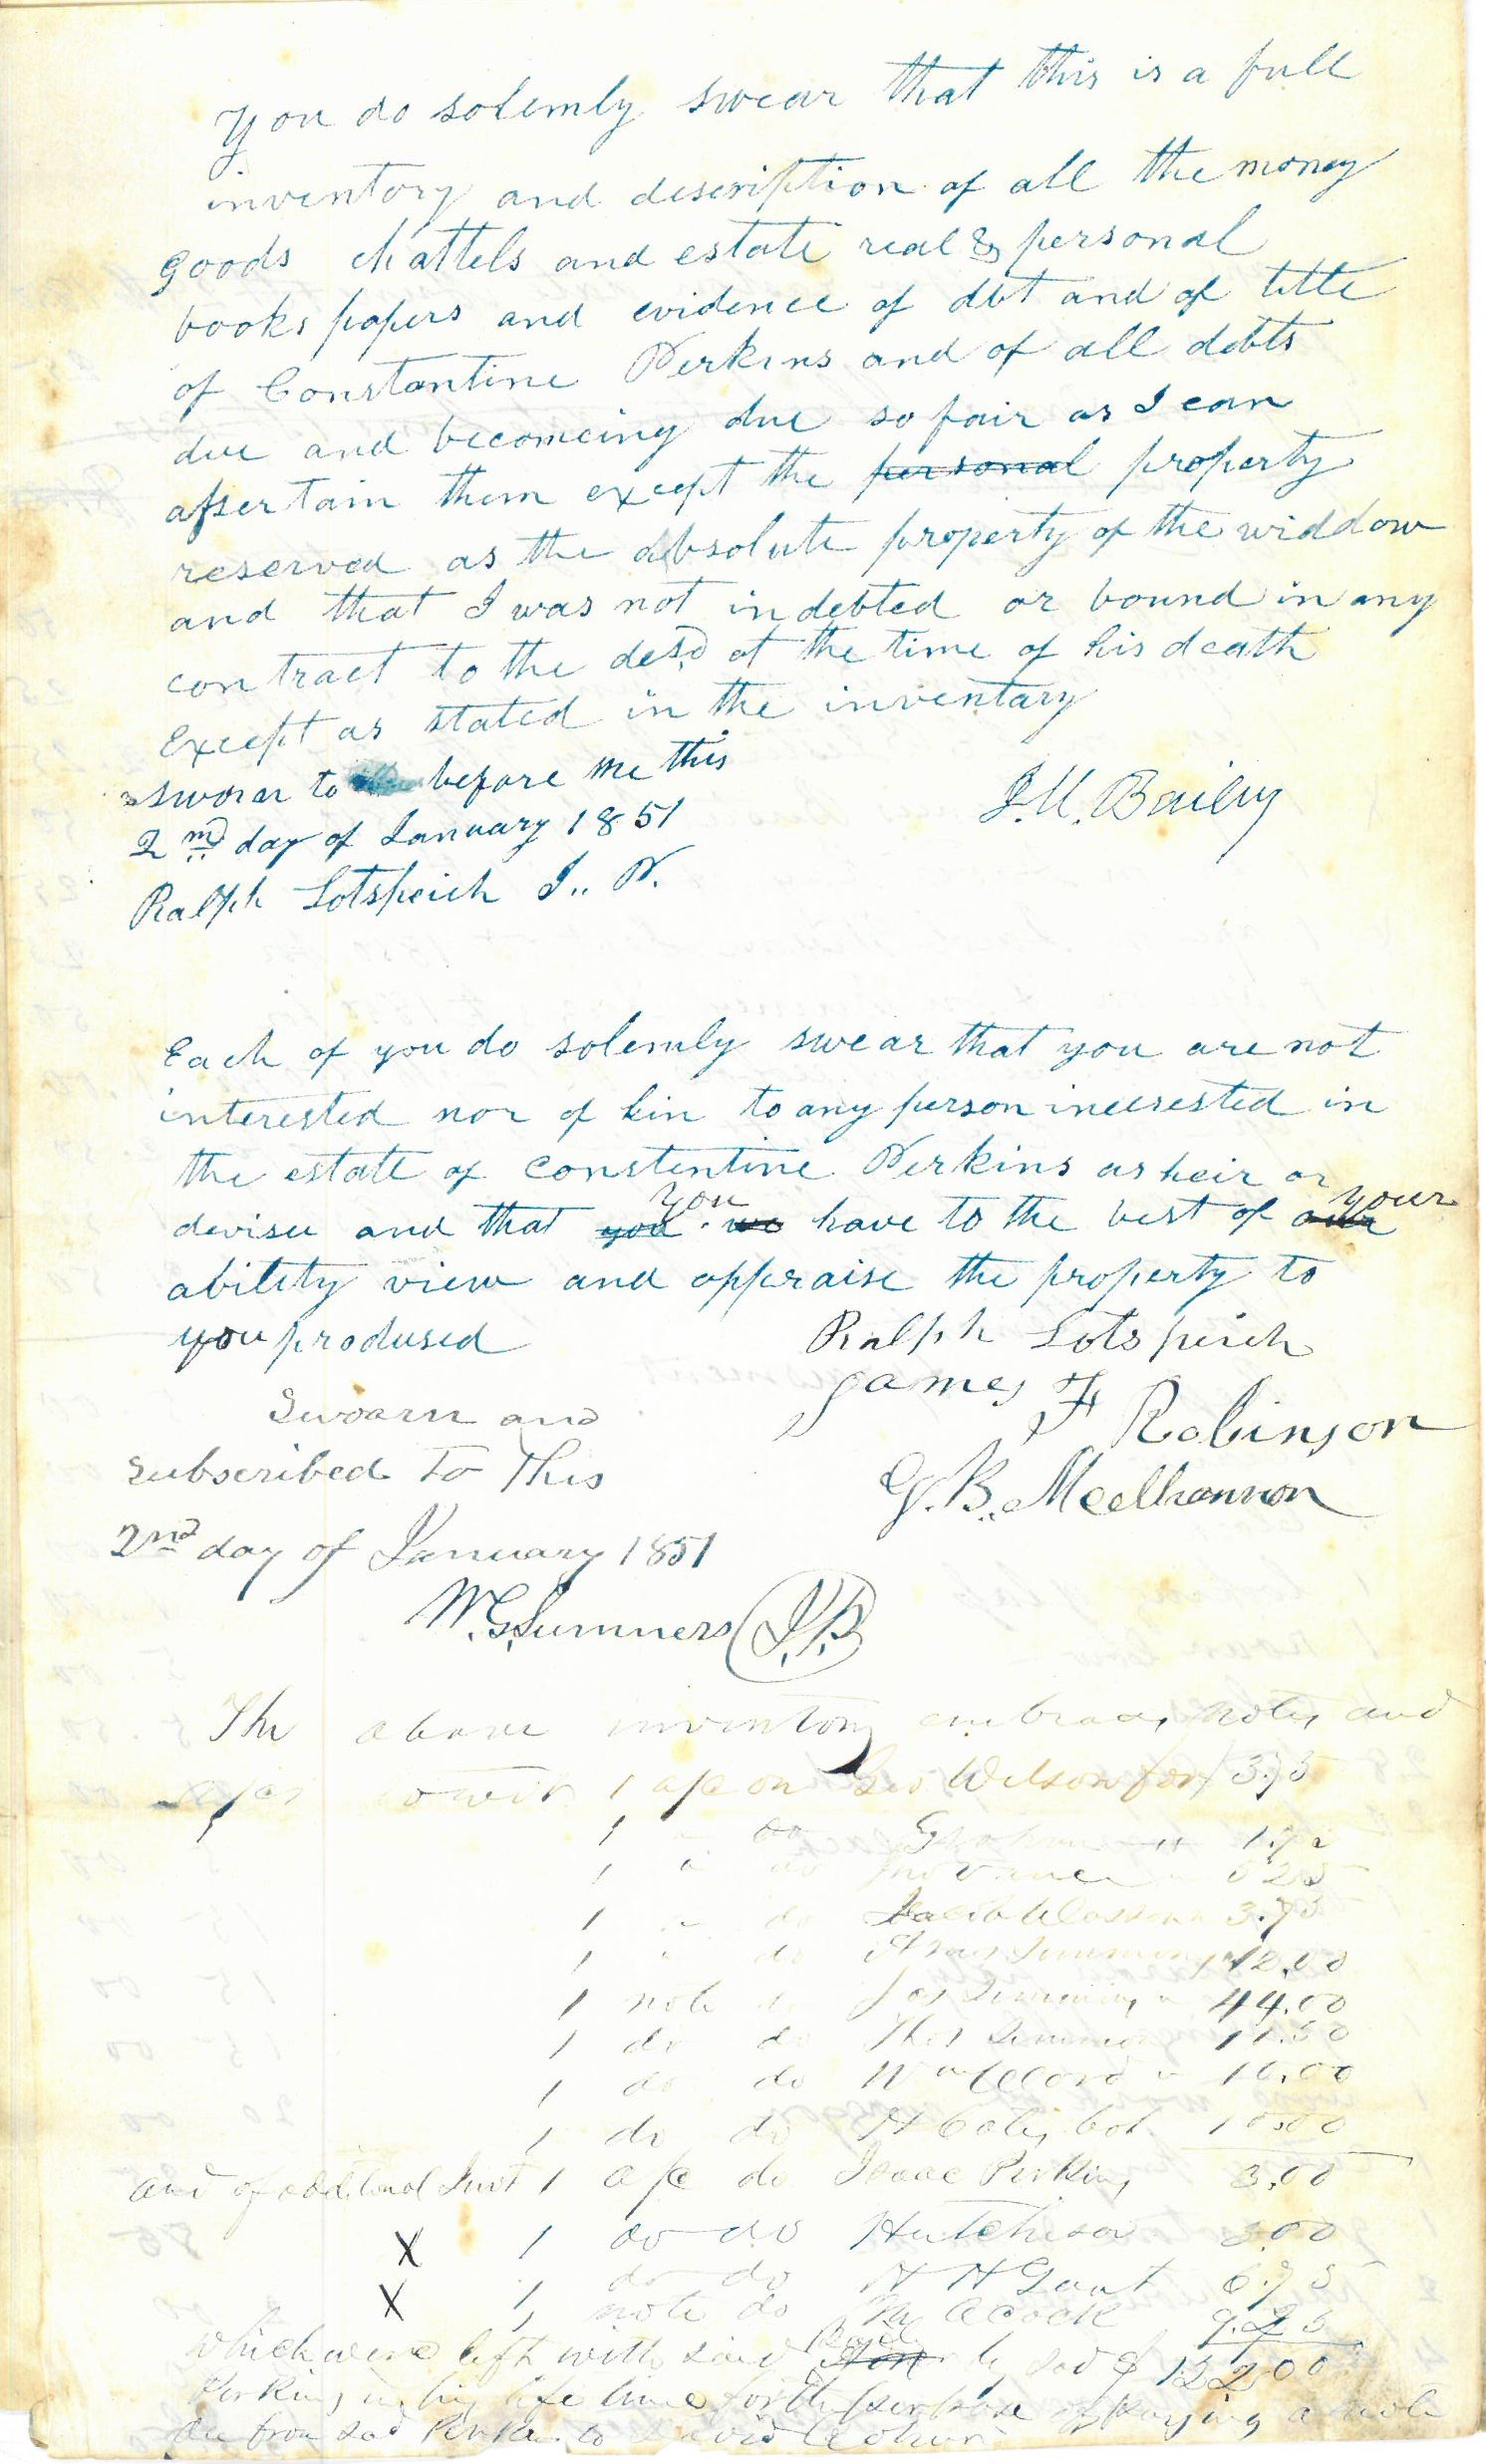 You do solemly swear that this is a full
inventory and description of all the money
goods chattels and estate real & personal
books papers and evidence of dbt and of title
of Constantine Perkins and of all debts
due and becomeing due so fair as I can
assertain them except the personal property
reserved as the absolute property of the widdow
and that I was not indebted or bound in any
contract to the desd at the time of his death
Except as stated in the inventary
sworn to before me this
J. M. Baily
2nd day of January 1851
Ralph Lotspeich J.. P.
Each of you do solemly swear that you are not
interested nor of kin to any person inerested in
the estate of Constentine Perkins as heir or
you your
devisee and that you we have to the best of our
ability view and appraise the property to
you prodused
Ralph Lotspeich
James F Robinson
Sworn and
subscribed to this
G. B. McElhannon
2nd day of January 1851
W. G. Sumners J.P.
The above inventory embraces notes and
towit 1 a/c on Geo Wilson for 3.75
1 " do Graham "
1 " do
1 " do Jacob 3.75
1 " do 12.00
1 note do Jas 44.00
1 do do Thos 11.50
1 do do Wm 16.00
1 do do H
and of additional 1 a/c do Isaac Perkins 3.00
X 1 do do Hutchison 3.00
1 do do H H Gant 6.75
X 1 note do 9.25
which were left with said Paid Son by sad C 122.00
Perkins in his life time for the purpose of paying a note
due from sad Perkins to David